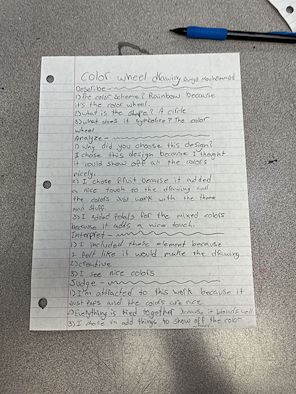 Color wheel drawing
Describe
1) The color scheme? Rainbow because
it's the color wheel.
2) what is the shape? A circle
3) what does it symbolize? The color
wheel
Analyze
1) why did you choose this design?
I chose this design because I thought
it could show off all the colors
nicely.
2) I chose that because it added
a nice touch to the drawing and
the colors Just work with the theme
and stuff.
3) I added petals for the mixed colors
because it adds a nice touch.
Interpret
1) I included these element because
I felt like it would make the drawing
2) creative
3) I see nice colors
Judge
1) I'm attracted to this work because it
Just pops and the colors are nice.
2) Everything is tied together because it blends well
3) I chose to add things to show off the color